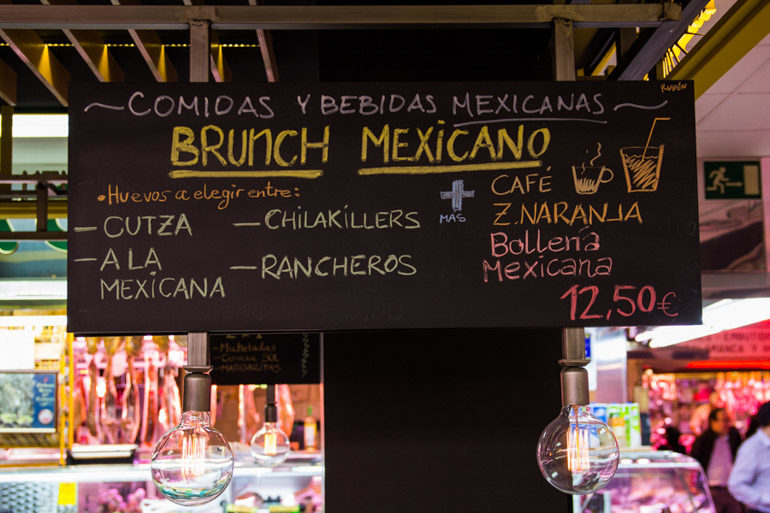 ~ COMIDAS Y BEBIDAS MEXICANAS ~
RUBÉN
BRUNCH MEXICANO
• Huevos a elegir entre:
— CUTZA
— CHILAKILLERS
— A LA MEXICANA
— RANCHEROS
+
MÁS
CAFÉ
Z.NARANJA
Bollería
Mexicana
12,50€
- Micheladas
- Cerveza SOL
- MARGARITAS